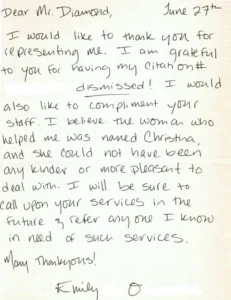 Dear Mr. Diamond, June 27th
I would like to thank you for
representing me. I am grateful
to you for having my citation#
dismissed! I would
also like to compliment your
staff. I believe the woman who
helped me was named Christina,
and she could not have been
any kinder or more pleasant to
deal with. I will be sure to
call upon your services in the
future & refer anyone I know
in need of such services.
Many Thankyous!
Emily O